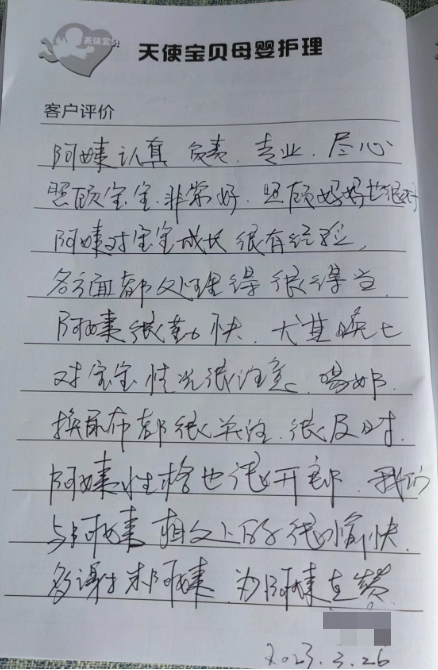 天使宝贝
天使宝贝母婴护理
客户评价
阿姨认真 负责、专业、尽心
照顾宝宝非常好、照顾妈妈也很好
阿姨对宝宝成长很有经验，
各方面都处理得很得当
阿姨很勤快、尤其晚上
对宝宝情况很注意、喂奶、
换尿布都很关注、很及时、
阿姨性格也很开朗、我们
与阿姨相处下的很愉快、
多谢朱阿姨、为阿姨点赞
2023.2.26